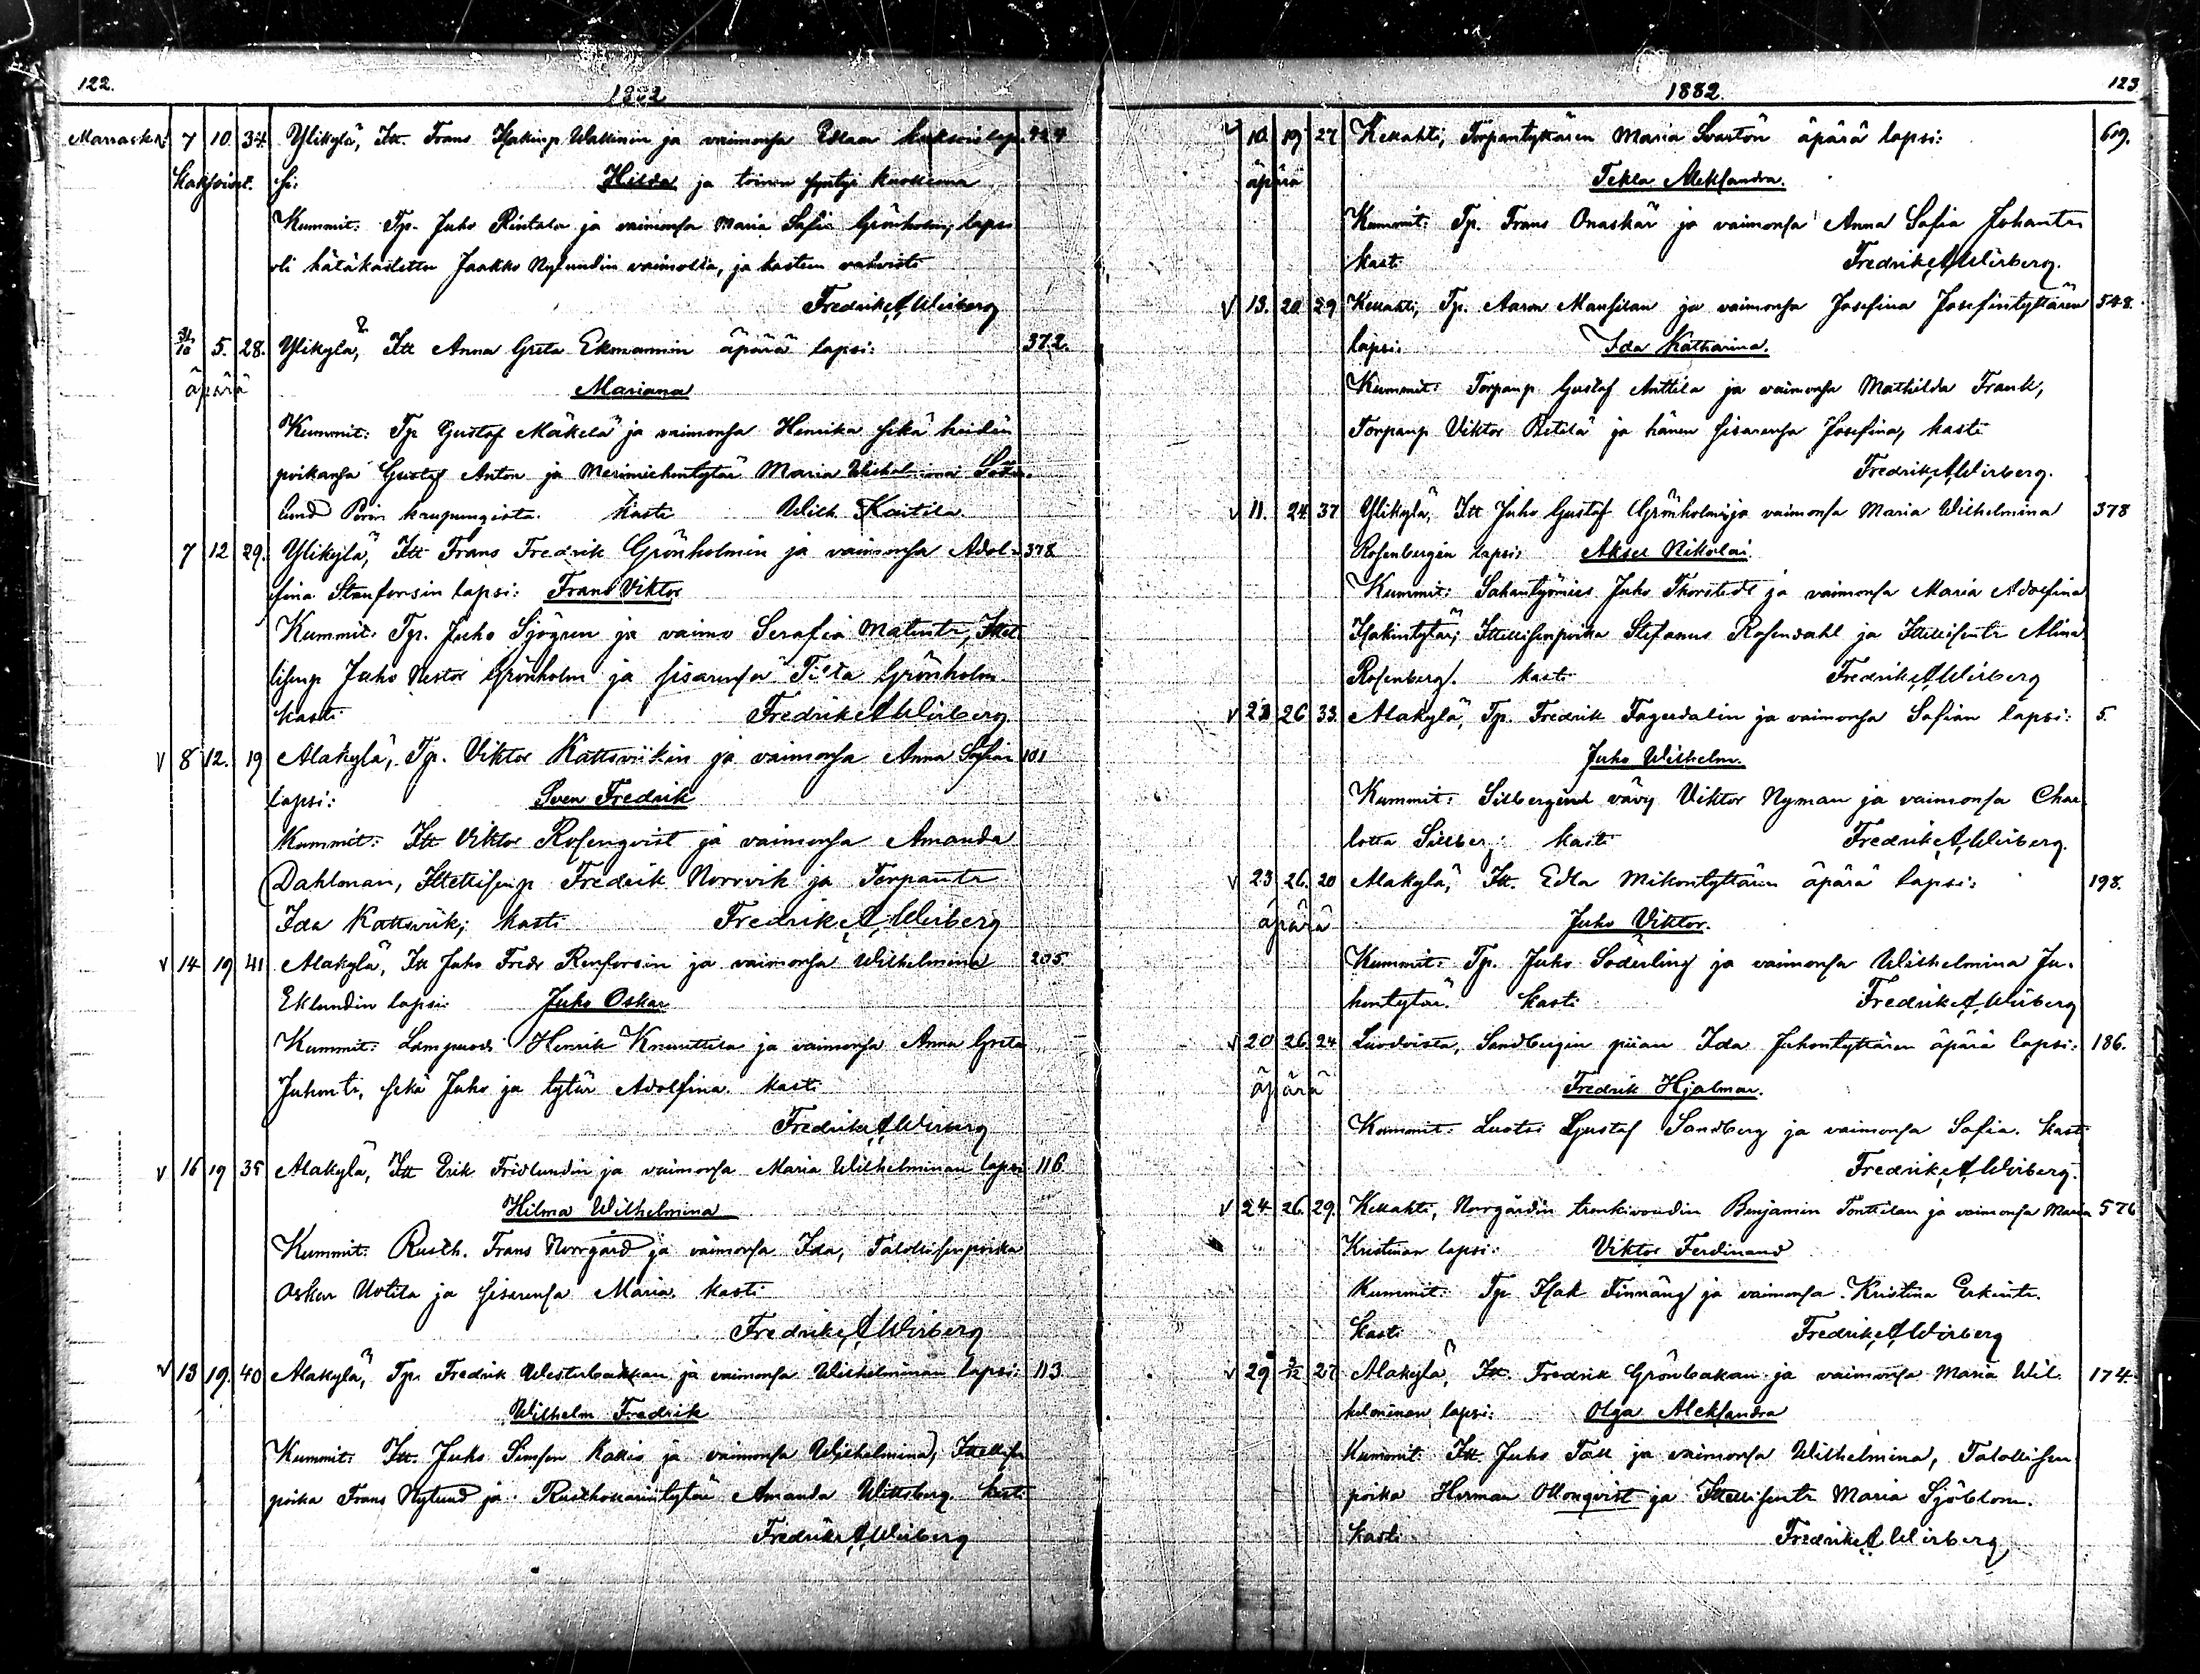 122.
1882
Marrask. 7 10. 34. Ylikylä, Itt. Frans Isakinp. Wallinin ja vaimonsa Edlan kaksoislap- 424
Kaksoiset. si: Hilda ja toinen syntyi kuolleena
Kummit: Tp. Juho Rintala ja vaimonsa Maria Sofia Grönholm; lapsi
oli hätäkastettu Jaakko Nylundin vaimolta, ja kasteen vahvisti
Fredrik A Wirberg
31/10 5. 28. Ylikylä, Itt Anna Greta Ekmannin äpärä lapsi: 372.
äpärä Mariana
Kummit: Tp Gustaf Mäkelä ja vaimonsa Henrika sekä heidän
poikansa Gustaf Anton ja Merimiehentytär Maria Wilhelmina Söder-
lund Porin kaupungista. kasti Wilh. Kontila.
7 12 29. Ylikylä, Itt Frans Fredrik Grönholmin ja vaimonsa Adol- 378
fina Stenforsin lapsi: Frans Viktor
Kummit: Tp. Juho Sjögren ja vaimo Serafia Matintr, Ittel-
lisenp Juho Nestor Grönholm ja sisarensa Tilda Grönholm
kasti Fredrik A Wirberg
V 8 12. 19 Alakylä, Tp. Viktor Kattsviikin ja vaimonsa Anna Sofian 101
lapsi: Sven Fredrik
Kummit: Itt Viktor Rosenqvist ja vaimonsa Amanda
Dahlman, Ittellisenp Fredrik Norrvik ja Torpantr
Ida Kattsvik; kasti Fredrik A Wirberg
V 14 19 41 Alakylä, Itt Juho Fredr Renforsin ja vaimonsa Wilhelmina 205.
Eklundin lapsi: Juho Oskar
Kummit: Lampuodi Henrik Knuuttila ja vaimonsa Anna Greta
Juhontr, sekä Juho ja tytär Adolfina. kasti
Fredrik A Wirberg
V 16 19 35 Alakylä, Itt Erik Fridlundin ja vaimonsa Maria Wilhelminan lapsi 116.
Hilma Wilhelmina
Kummit: Rusth. Frans Norrgård ja vaimonsa Ida, Talollisenpoika
Oskar Uotila ja sisarensa Maria. kasti
Fredrik A Wirberg
V 13 19. 40 Alakylä, Tp. Fredrik Westerbackan ja vaimonsa Wilhelminan lapsi: 113
Wilhelm Fredrik
Kummit: Itt. Juho Simson Kallio ja vaimonsa Wilhelmina, Ittellisen
poika Frans Nylund ja Rusthollarintytär Amanda Wittsberg. kasti
Fredrik A Wirberg
1882.
123
V 10. 19 27 Kellahti, Torpantyttären Maria Svartön äpärä lapsi: 609.
äpärä Tekla Aleksandra.
Kummit: Tp. Frans Onaskär ja vaimonsa Anna Sofia Juhantr
kasti Fredrik A Wirberg.
V 13. 20 29 Kellahti, Tp. Aaron Mansilan ja vaimonsa Josefina Josefintyttären 548.
lapsi: Ida Katharina.
Kummit: Torpanp Gustaf Anttila ja vaimonsa Mathilda Frank,
Torpanp Viktor Ritilä ja hänen sisarensa Josefina, kasti
Fredrik A Wirberg.
V 11. 24 37 Ylikylä, Itt Juho Gustaf Grönholmin ja vaimonsa Maria Wilhelmina 378
Rosenbergin lapsi: Aksel Nikolai.
Kummit: Sahantyömies Juho Thorstedt ja vaimonsa Maria Adolfina
Isakintytär; Ittellisenpoika Stefanus Rosendahl ja Ittellisentr Alina
Rosenberg. kasti Fredrik A Wirberg
V 23 26 33. Alakylä, Tp. Fredrik Fagerdalin ja vaimonsa Sofian lapsi: 5.
Juho Wilhelm.
Kummit: Silbergin vävy Viktor Nyman ja vaimonsa Char-
lotta Silberg; kasti Fredrik A Wirberg.
V 23 26. 20 Alakylä, Itt. Edla Mikontyttären äpärä lapsi: 198.
äpärä Juho Viktor.
Kummit: Tp. Juho Söderling ja vaimonsa Wilhelmina Ju-
hontytär. kasti Fredrik A Wirberg
V 20 26. 24 Luodoista, Sandbergin piian Ida Juhontyttären äpärä lapsi: 186.
äpärä Fredrik Hjalmar.
Kummit: Luotsi Gustaf Sandberg ja vaimonsa Sofia. kasti
Fredrik A Wirberg.
V 24 26. 29. Kellahti, Norrgårdin trenkivoudin Benjamin Tonttilan ja vaimonsa Maria 576
Kristinan lapsi: Viktor Ferdinand
Kummit: Tp Isak Finnäng ja vaimonsa Kristina Erkintr.
kasti Fredrik A Wirberg
V 29 3/12 27 Alakylä, Itt. Fredrik Grönbakan ja vaimonsa Maria Wil- 174.
helminan lapsi: Olga Aleksandra
Kummit: Itt. Juho Tall ja vaimonsa Wilhelmina, Talollisen
poika Herman Ollonqvist ja Ittellisentr Maria Sjöblom.
kasti Fredrik A Wirberg